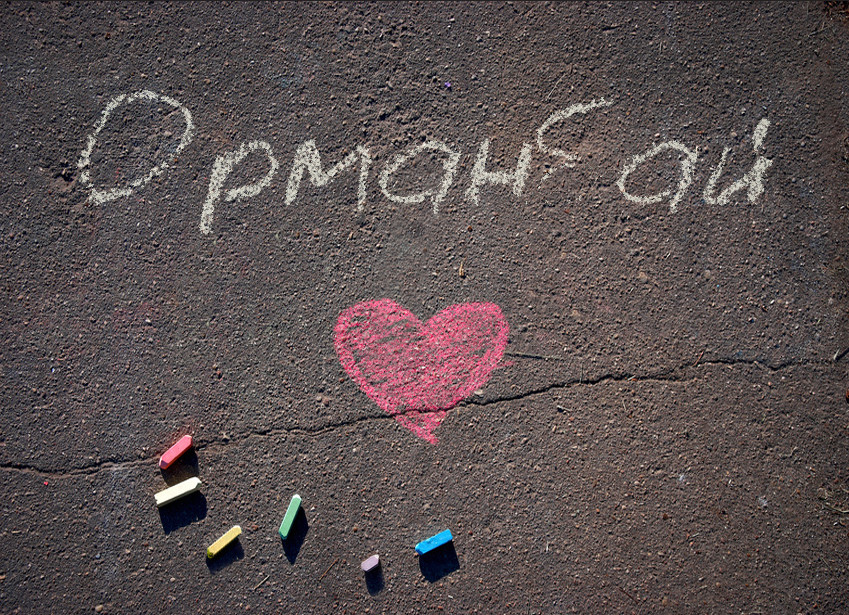 Орманбай